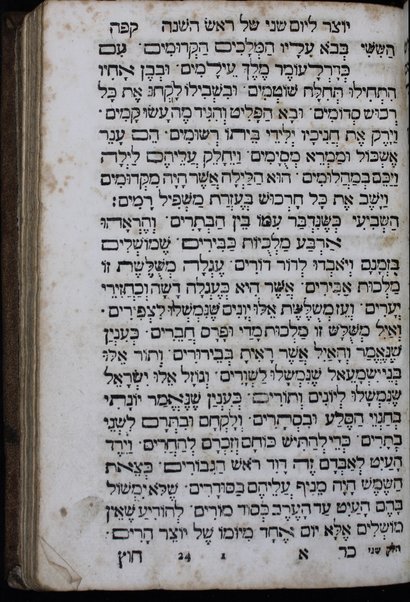 יוצר ליום שני של ראש השנה קפה
הַשִּׁשִּׁי בְּבֹא עָלָיו הַמְּלָכִים הַקְּדוּמִים׃ עִם
כְּדָרְלָעוֹמֶר מֶלֶךְ עֵילָמִים׃ וּבְבֶן אָחִיו
הִתְחִילוּ תְּחִלָּה שׁוֹטְמִים׃ וּבִשְׁבִילוֹ לָקְחוּ אֶת כָּל
רְכוּשׁ סְדוֹמִים׃ וּבָא הַפָּלִיט וְהִגִּיד מֶה עָשׂוּ קָמִים׃
וַיָּרֶק אֶת חֲנִיכָיו וִלִידֵי בֵיתוֹ רְשׁוּמִים׃ הֵם עָנֵר
אֶשְׁכּוֹל וּמַמְרֵא מְסֻיָּמִים׃ וַיֵּחָלֵק עֲלֵיהֶם לַיְלָה
וַיַּכֵּם בְּמַהֲלוּמִים׃ הוּא הַלַּיְלָה אֲשֶׁר הָיָה מִקְּדוּמִים
וַיָּשֶׁב אֶת כָּל הָרְכוּשׁ בְּעֶזְרַת מַשְׁפִּיל רָמִים׃
הַשְּׁבִיעִי כְּשֶׁנִּדְבַּר עִמּוֹ בֵּין הַבְּתָרִים׃ וְהֶרְאָהוּ
אַרְבַּע מַלְכֻיּוֹת כַּבִּירִים׃ שֶׁמּוֹשְׁלִים
בִּזְמַנָּם וְיֹאבְדוּ לְדוֹר דּוֹרִים׃ עֶגְלָה מְשֻׁלֶּשֶׁת זוֹ
מַלְכוּת אַבִּירִים׃ אֲשֶׁר הוּא כְּעֶגְלָה דָשָׁה וְכַחֲזִירֵי
יְעָרִים׃ וְעֵז מְשֻׁלֶּשֶׁת אֵלּוּ יְוָנִים שֶׁנִּמְשְׁלוּ לִצְפִירִים׃
וְאַיִל מְשֻׁלָּשׁ זוֹ מַלְכוּת מָדַי וּפָרַס חֲבֵרִים׃ כְּעִנְיָן
שֶׁנֶּאֱמַר וְהָאַיִל אֲשֶׁר רָאִיתָ בְּבֵירוּרִים׃ וְתוֹר אֵלּוּ
בְּנֵי יִשְׁמָעֵאל שֶׁנִּמְשְׁלוּ לַשְּׁוָרִים׃ וְגוֹזָל אֵלּוּ יִשְׂרָאֵל
שֶׁנִּמְשְׁלוּ לְיוֹנִים וְתוֹרִים׃ כְּעִנְיָן שֶׁנֶּאֱמַר יוֹנָתִי
בְּחַגְוֵי הַסֶּלַע וּבִסְתָרִים׃ וּלְקָחָם וּבִתְּרָם לִשְׁנֵי
בְתָרִים׃ כְּדֵי לְהַתִּישׁ כּוֹחָם וְזִכְרָם לְהַחֲרִים׃ וַיֵּרֶד
הָעַיִט לְאַבְּדָם זֶה דָּוִד רֹאשׁ הַגִּבּוֹרִים׃ בְּצֵאת
הַשֶּׁמֶשׁ הָיָה מֵנִיף עֲלֵיהֶם בְּסוּדָרִים׃ שֶׁלֹּא יִמְשׁוֹל
בָּהֶם הָעַיִט עַד הָעֶרֶב בְּסוֹד מוֹרִים׃ לְהוֹדִיעַ שֶׁאֵין
מוֹשְׁלִים אֶלָּא יוֹם אֶחָד מִיּוֹמוֹ שֶׁל יוֹצֵר הָרִים׃
חלק שני כד א 1 24 חוץ